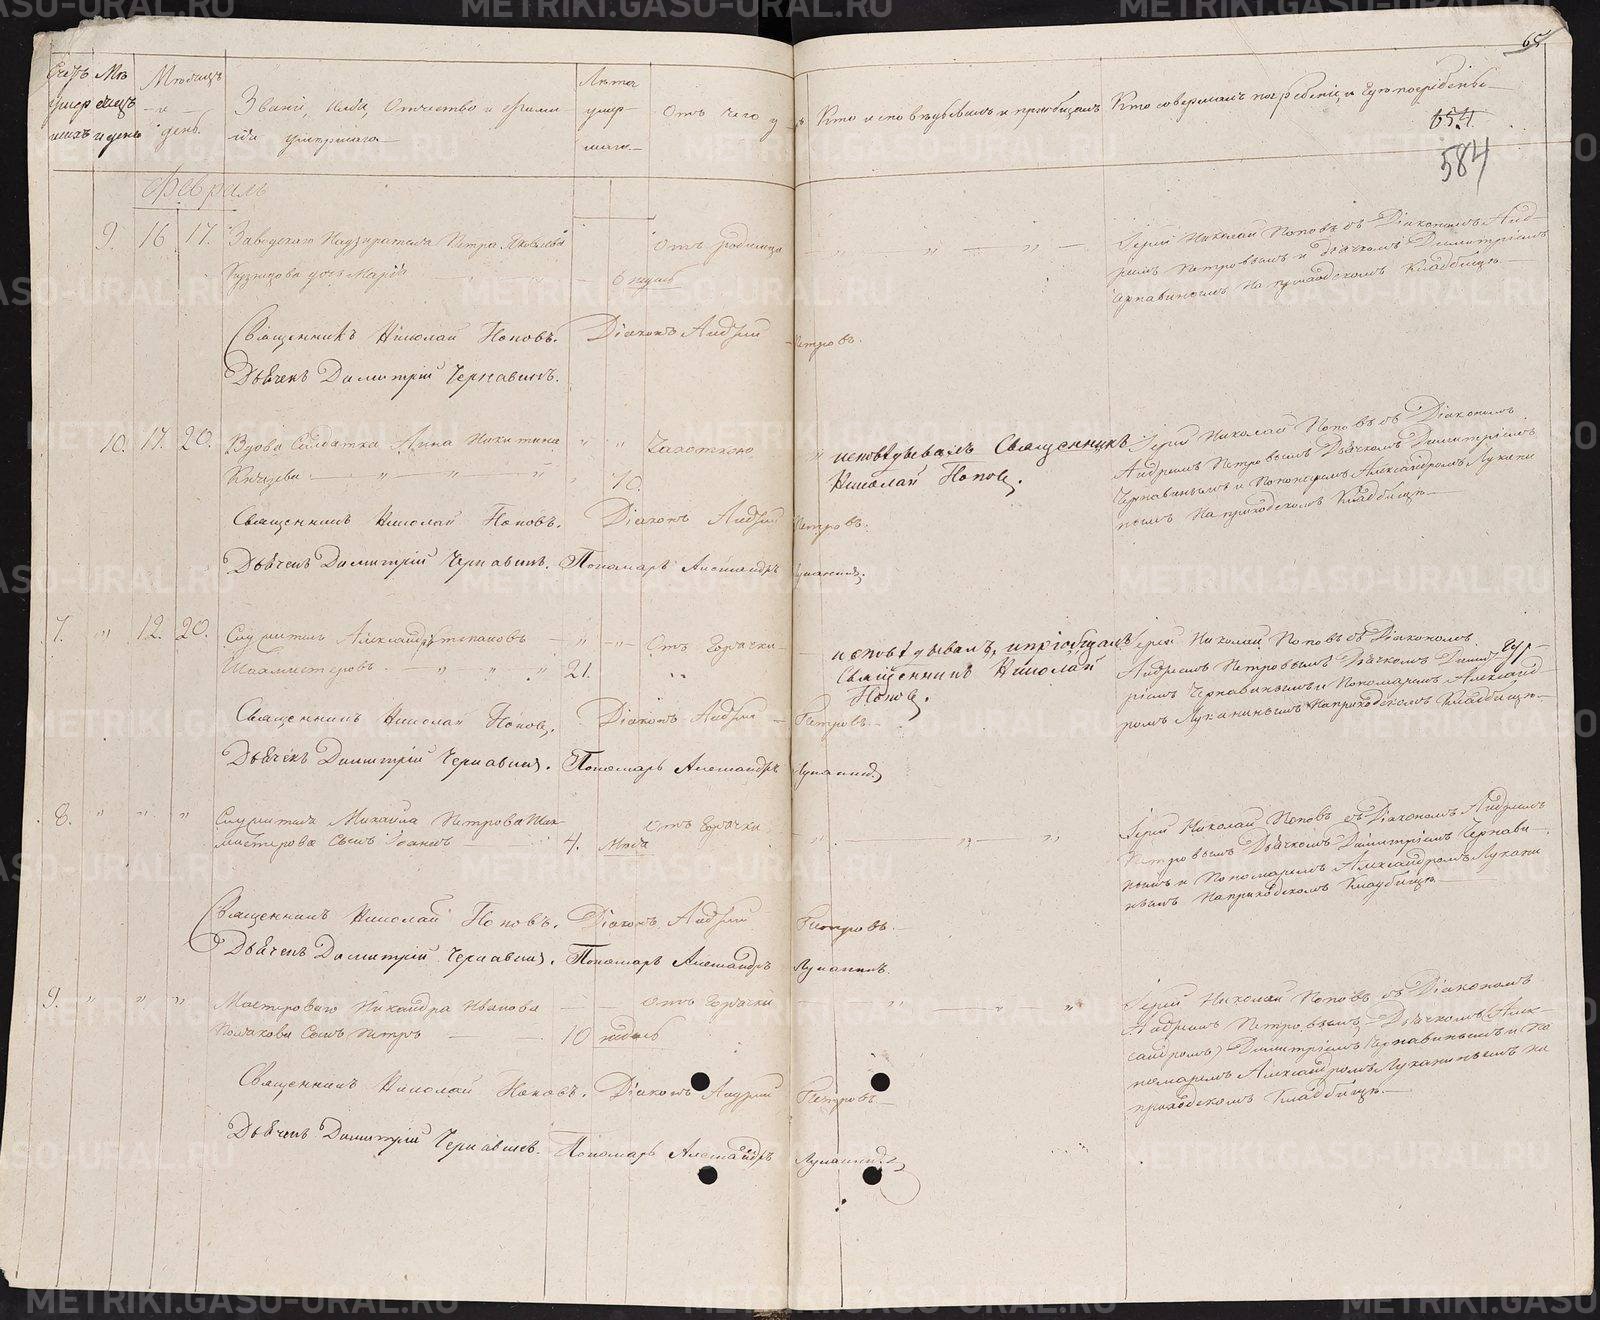 METRIKI.GASU-URAL.RU
65
Мѣсяцъ
и
день
Званіе, имя, Отчество и фами
лія умершаго
Лѣта
умер
шаго
Отъ чего у
Кто исповѣдывалъ и пріобщалъ
Кто совершалъ погребеніе, и гдѣ погребены
654.
584
Февраль
9. 16 17. Заводскаго Надзирателя Петра Яковлева
Кузнецова дочь Марія
Отъ родимца
Іерей Николай Поповъ съ Діакономъ Анд-
реемъ Петровымъ и Дьячкомъ Димитріемъ
Чернавинымъ на приходскомъ Кладбищѣ
Священникъ Николай Поповъ. Діаконъ Андрей Петровъ.
Дьячекъ Димитрій Чернавинъ.
10. 17. 20. Вдова Солдатка Анна Никитина
70.
Чахоткою
исповѣдывалъ Священникъ
Николай Поповъ.
Іерей Николай Поповъ съ Діакономъ
Андреемъ Петровымъ Дьячкомъ Димитріемъ
Чернавинымъ и Пономаремъ Александромъ Лукани
нымъ на приходскомъ Кладбищѣ
Священникъ Николай Поповъ. Діаконъ Андрей Петровъ.
Дьячекъ Димитрій Чернавинъ. Пономарь Александръ Луканинъ.
7. " 12. 20. Служитель Александръ Степановъ
Шахмистеровъ
21.
Отъ Горячки
исповѣдывалъ, и пріобщалъ
Священникъ Николай
Поповъ.
Іерей Николай Поповъ съ Діакономъ
Андреемъ Петровымъ Дьячкомъ Димит
ріемъ Чернавинымъ и Пономаремъ Александ-
ромъ Луканинымъ на приходскомъ Кладбищѣ
Священникъ Николай Поповъ. Діаконъ Андрей Петровъ.
Дьячекъ Димитрій Чернавинъ. Пономарь Александръ Луканинъ
8. " " " Служителя Михаила Петрова Шах-
мистерова Сынъ Іоаннъ
4.
Отъ Горячки
Іерей Николай Поповъ съ Діакономъ Андреемъ
Петровымъ Дьячкомъ Димитріемъ Чернави-
нымъ и Пономаремъ Александромъ Лукани
нымъ на приходскомъ Кладбищѣ
Священникъ Николай Поповъ. Діаконъ Андрей Петровъ.
Дьячекъ Димитрій Чернавинъ. Пономарь Александръ Луканинъ.
9. " " " Мастероваго Никандра Иванова
Полякова Сынъ Петръ
10 недѣль
Отъ Горячки
Іерей Николай Поповъ съ Діакономъ
Андреемъ Петровымъ Дьячкомъ (Алек-
сандромъ) Димитріемъ Чернавинымъ и По
номаремъ Александромъ Луканинымъ на
приходскомъ Кладбищѣ
Священникъ Николай Поповъ. Діаконъ Андрей Петровъ
Дьячекъ Димитрій Чернавинъ. Пономарь Александръ Луканинъ